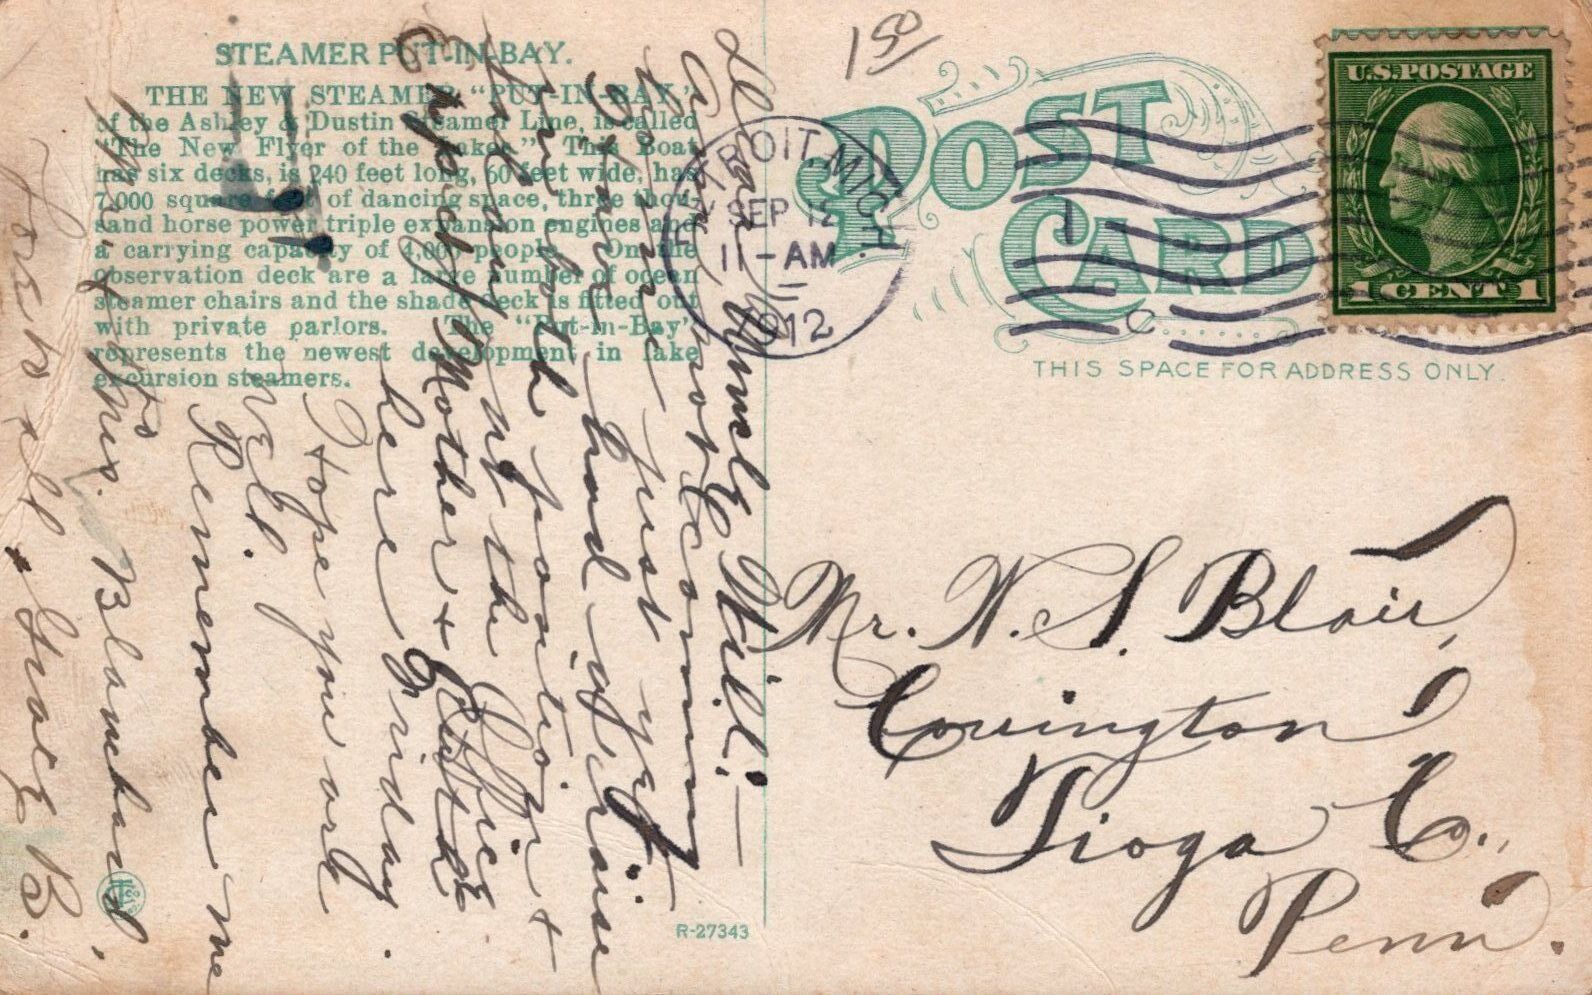 STEAMER PUT-IN-BAY.
THE NEW STEAMER "PUT-IN-BAY,"
of the Ashley & Dustin Steamer Line, is called
"The New Flyer of the Lakes." This Boat
has six decks, is 240 feet long, 60 feet wide, has
7,000 square feet of dancing space, three thou-
sand horse power triple expansion engines and
a carrying capacity of 4,000 people. On the
observation deck are a large number of ocean
steamer chairs and the shade deck is fitted out
with private parlors. The "Put-in-Bay"
represents the newest development in lake
excursion steamers.
Dear Uncle Will:—
Am not coming
down just yet.
Have had a raise
in both position +
salary at the Office
Expect Mother +
here Friday
Hope you are
well.
Remember me
to
Mr. & Mrs. Blanchard,
B.
R-27343
1 50
POST CARD
DETROIT, MICH.
SEP 12
11-AM
1912
1 C
U.S. POSTAGE
1 CENT 1
THIS SPACE FOR ADDRESS ONLY.
Mr. W. S. Blair,
Covington
Tioga Co.,
Penn.